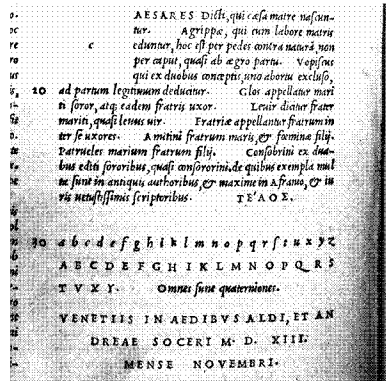 AESARES Dicti, qui cæsa matre nascun-
tur. Agrippæ, qui cum labore matris
c eduntur, hoc est per pedes contra naturā, non
per caput, quasi ab ægro partu. Vopiscus
qui ex duobus conceptis, uno abortu excluso,
20 ad partum legitimum deducitur. Glos appellatur mari
ti soror, atq; eadem fratris uxor. Leuir dicitur frater
mariti, quasi leuus uir. Fratriæ appellantur fratrum in
ter se uxores. Amitini fratrum maris, & fœminæ filij.
Patrueles marium fratrum filij. Consobrini ex dua-
bus editi sororibus, quasi consororini, de quibus exempla mul
ta sunt in antiquis authoribus, & maxime in Afranio, & iu
ris uetustissimis scriptoribus. ΤΕ'ΛΟΣ.
30 a b c d e f g h i k l m n o p q r s t u x y z
A B C D E F G H I K L M N O P Q R S
T V X Y. Omnes sunt quaterniones.
VENETIIS IN AEDIBVS ALDI, ET AN
DREAE SOCERI M. D. XIII.
MENSE NOVEMBRI.